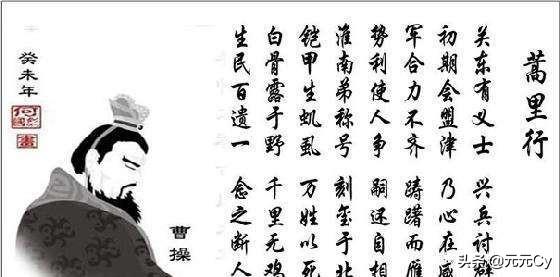 蒿里行
关东有义士 兴兵讨
初期会盟津 乃心在咸
军合力不齐 踌躇而雁
势利使人争 嗣还自相
淮南弟称号 刻玺于北
铠甲生虮虱 万姓以死
白骨露于野 千里无鸡
生民百遗一 念之断人
曹操
癸未年
画
头条 @元元Cy